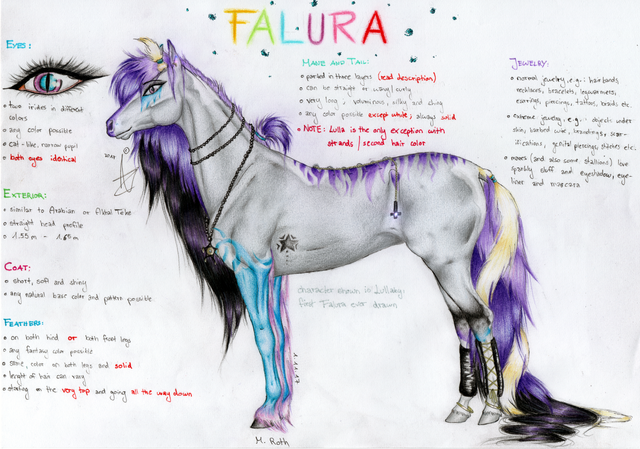 FALURA
EYES:
• two irides in different
colors
• any color possible
• cat-like, narrow pupil
• both eyes identical
EXTERIOR:
• similar to Arabian or Akhal Teke
• straight head profile
• 1.55 m - 1.65 m
COAT:
• short, soft and shiny
• any natural base color and pattern possible
FEATHERS:
• on both hind or both front legs
• any fantasy color possible
• same color on both legs and solid
• lenght of hair can vary
• starting on the very top and going all the way down
MANE AND TAIL:
• parted in three layers (read description)
• can be straight or wavy/curly
• very long, voluminous, silky and shiny
• any color possible except white; always solid
• NOTE: Lulla is the only exception with
strands / second hair color
JEWELRY:
• normal jewelry, e.g.: hairbands,
necklaces, bracelets, legwarmers,
earrings, piercings, tattoos, braids etc.
• extreme jewelry, e.g.: objects under
skin, barbed wire, brandings, scar-
ifications, genital piercings, stilettos etc.
• mares (and also some stallions) love
sparkly stuff and eyeshadow, eye-
liner and mascara
character shown is Lullaby:
first Falura ever drawn
M. Roth